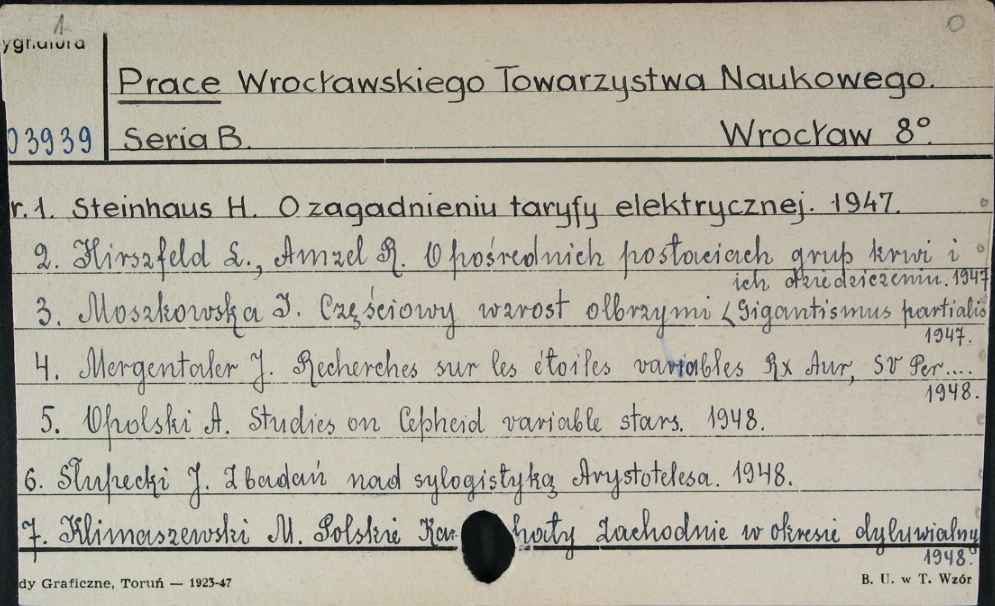 1 0
ygnatura
Prace Wrocławskiego Towarzystwa Naukowego.
03939 Seria B. Wrocław 8°.
r. 1. Steinhaus H. O zagadnieniu taryfy elektrycznej. 1947.
2. Hirszfeld L., Amzel R. O pośrednich postaciach grup krwi i
ich dziedziczeniu. 1947
3. Moszkowska I. Częściowy wzrost olbrzymi (Gigantismus partialis
1947.
4. Mergentaler J. Recherches sur les étoiles variables Rx Aur, SV Per....
1948.
5. Opolski A. Studies on Cepheid variable stars. 1948.
6. Słupecki J. Z badań nad sylogistyką Arystotelesa. 1948.
7. Klimaszewski M. Polskie Kar haty Zachodnie w okresie dyluwialny
1948.
dy Graficzne, Toruń — 1923-47 B. U. w T. Wzór